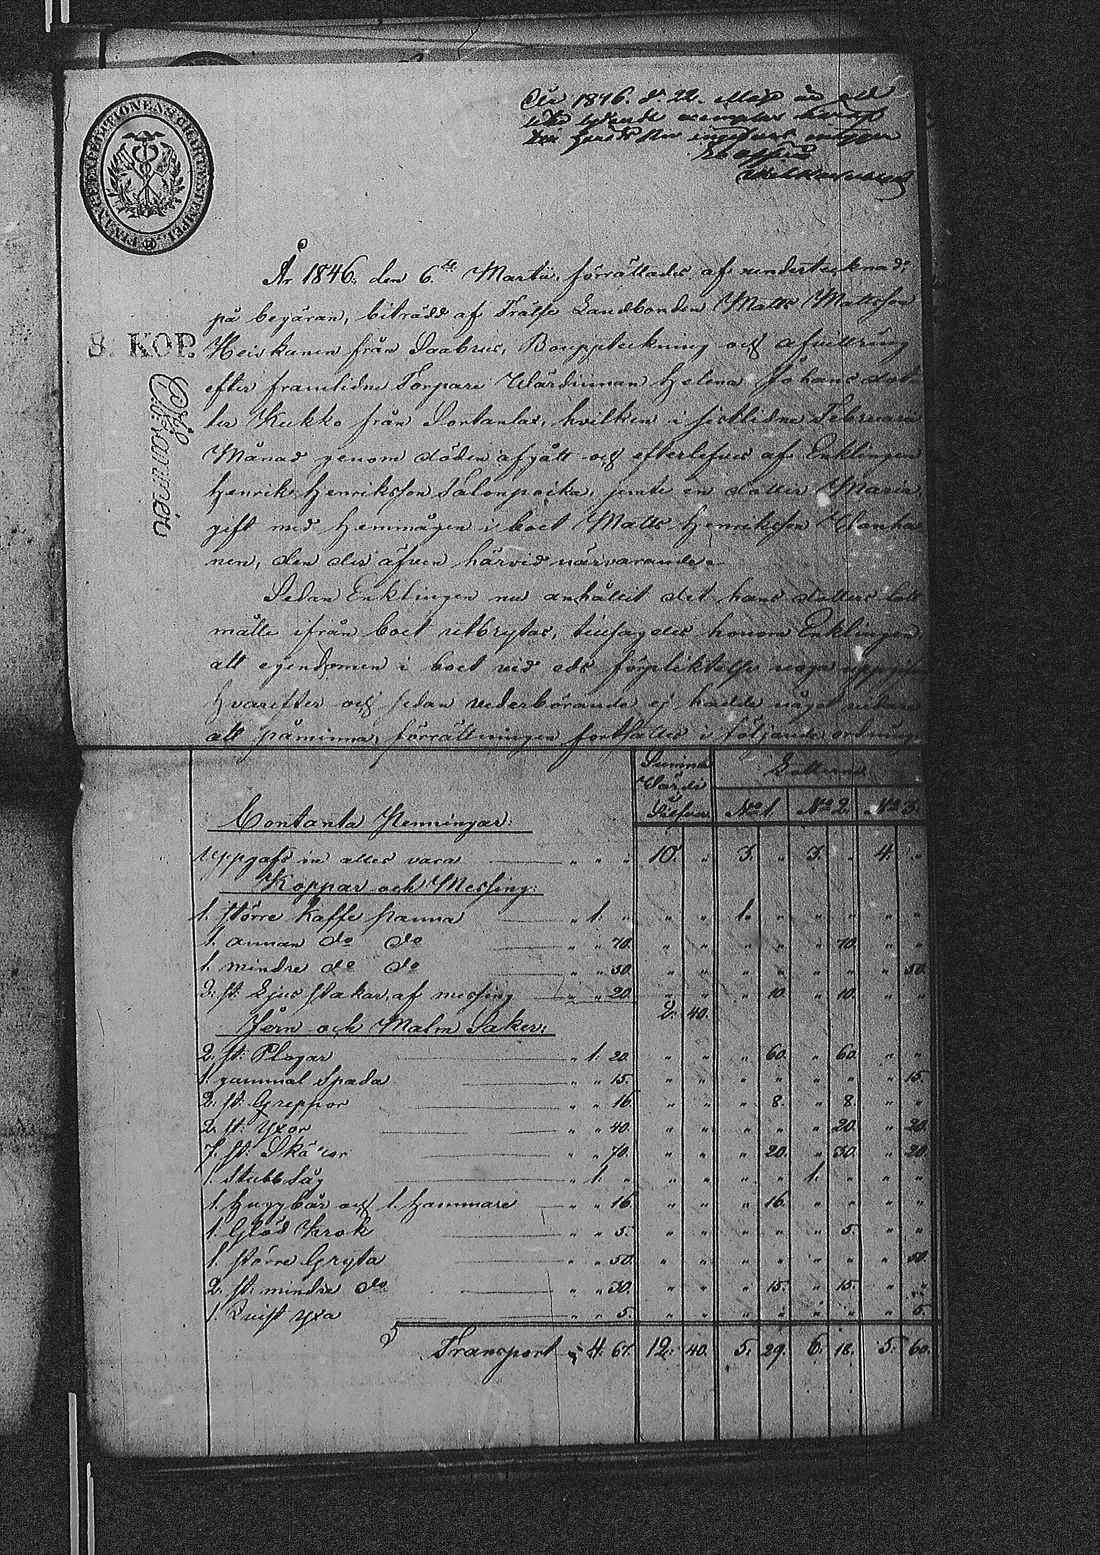 FINANCE EXPEDITIONENS CHARTÆ STEMPEL
År 1846. d. 22. Maji
År 1846, den 6te Martii, förrättades af undertecknad,
på begäran, biträdd af Frälse Landbonden Matts Mattsson
Heiskanen från Saabrus, Bouppteckning och afvittring
8. KOP.
efter framlidne Torpare Wärdinnan Helena Johans dot
ter Kukko från Sontanlax, hvilken i sistlidne Februarii
Månad genom döden afgått och efterlefves af Enklingen
Henrik Henriksson Salonpoika, jemte en dotter Maria,
gift med hemmågen i boet Matts Henriksson Wanha
nen, den der äfven härvid närvarande.
Sedan Enklingen nu anhållit det hans dotters lott
måtte ifrån boet utbrytas, tillsagdes honom Enklingen
att egendomen i boet vid eds förpliktelse noga uppgifva
hvarefter och sedan vederbörande ej hade något vidare
att påminna, förrättningen fortsattes i följande ordning:
Summa Värde i Silfver Lotterne
Contanta Penningar: No 1. No 2. No 3.
Uppgafs in alles vara " " " 10. " 3. " 3. " 4. "
Koppar och Messing:
1. större Kaffe panna " 1. " " " 1. " " " " "
1. annan do do " " 70. " " " " " 70. " "
1. mindre do do " " 50. " " " " " " " 50.
2. st. Ljus stakar af messing " " 20. " " " 10. " 10. " "
2. 40.
Jern och Malm Saker:
2. st. Plogar " 1. 20. " " " 60. " 60. " "
1. gammal Spada " " 15. " " " " " " " 15.
2. st. Greppor " " 16. " " " 8. " 8. " "
2. st. Yxor " " 40. " " " " " 20. " 20.
7. st. Skäror " " 70. " " " 20. " 30. " 20.
1. Stubb Såg " 1. " " " " " 1. " " "
1. Huggbår och 1. Hammare " " 16. " " " 16. " " " "
1. Glöd Krok " " 5. " " " " " 5. " "
1. större Gryta " " 50. " " " " " " " 50.
2. st. mindre do " " 30. " " " 15. " 15. " "
1. Quist yxa " " 5. " " " " " " " 5.
Transport 4. 67. 12. 40. 5. 29. 6. 18. 5. 60.